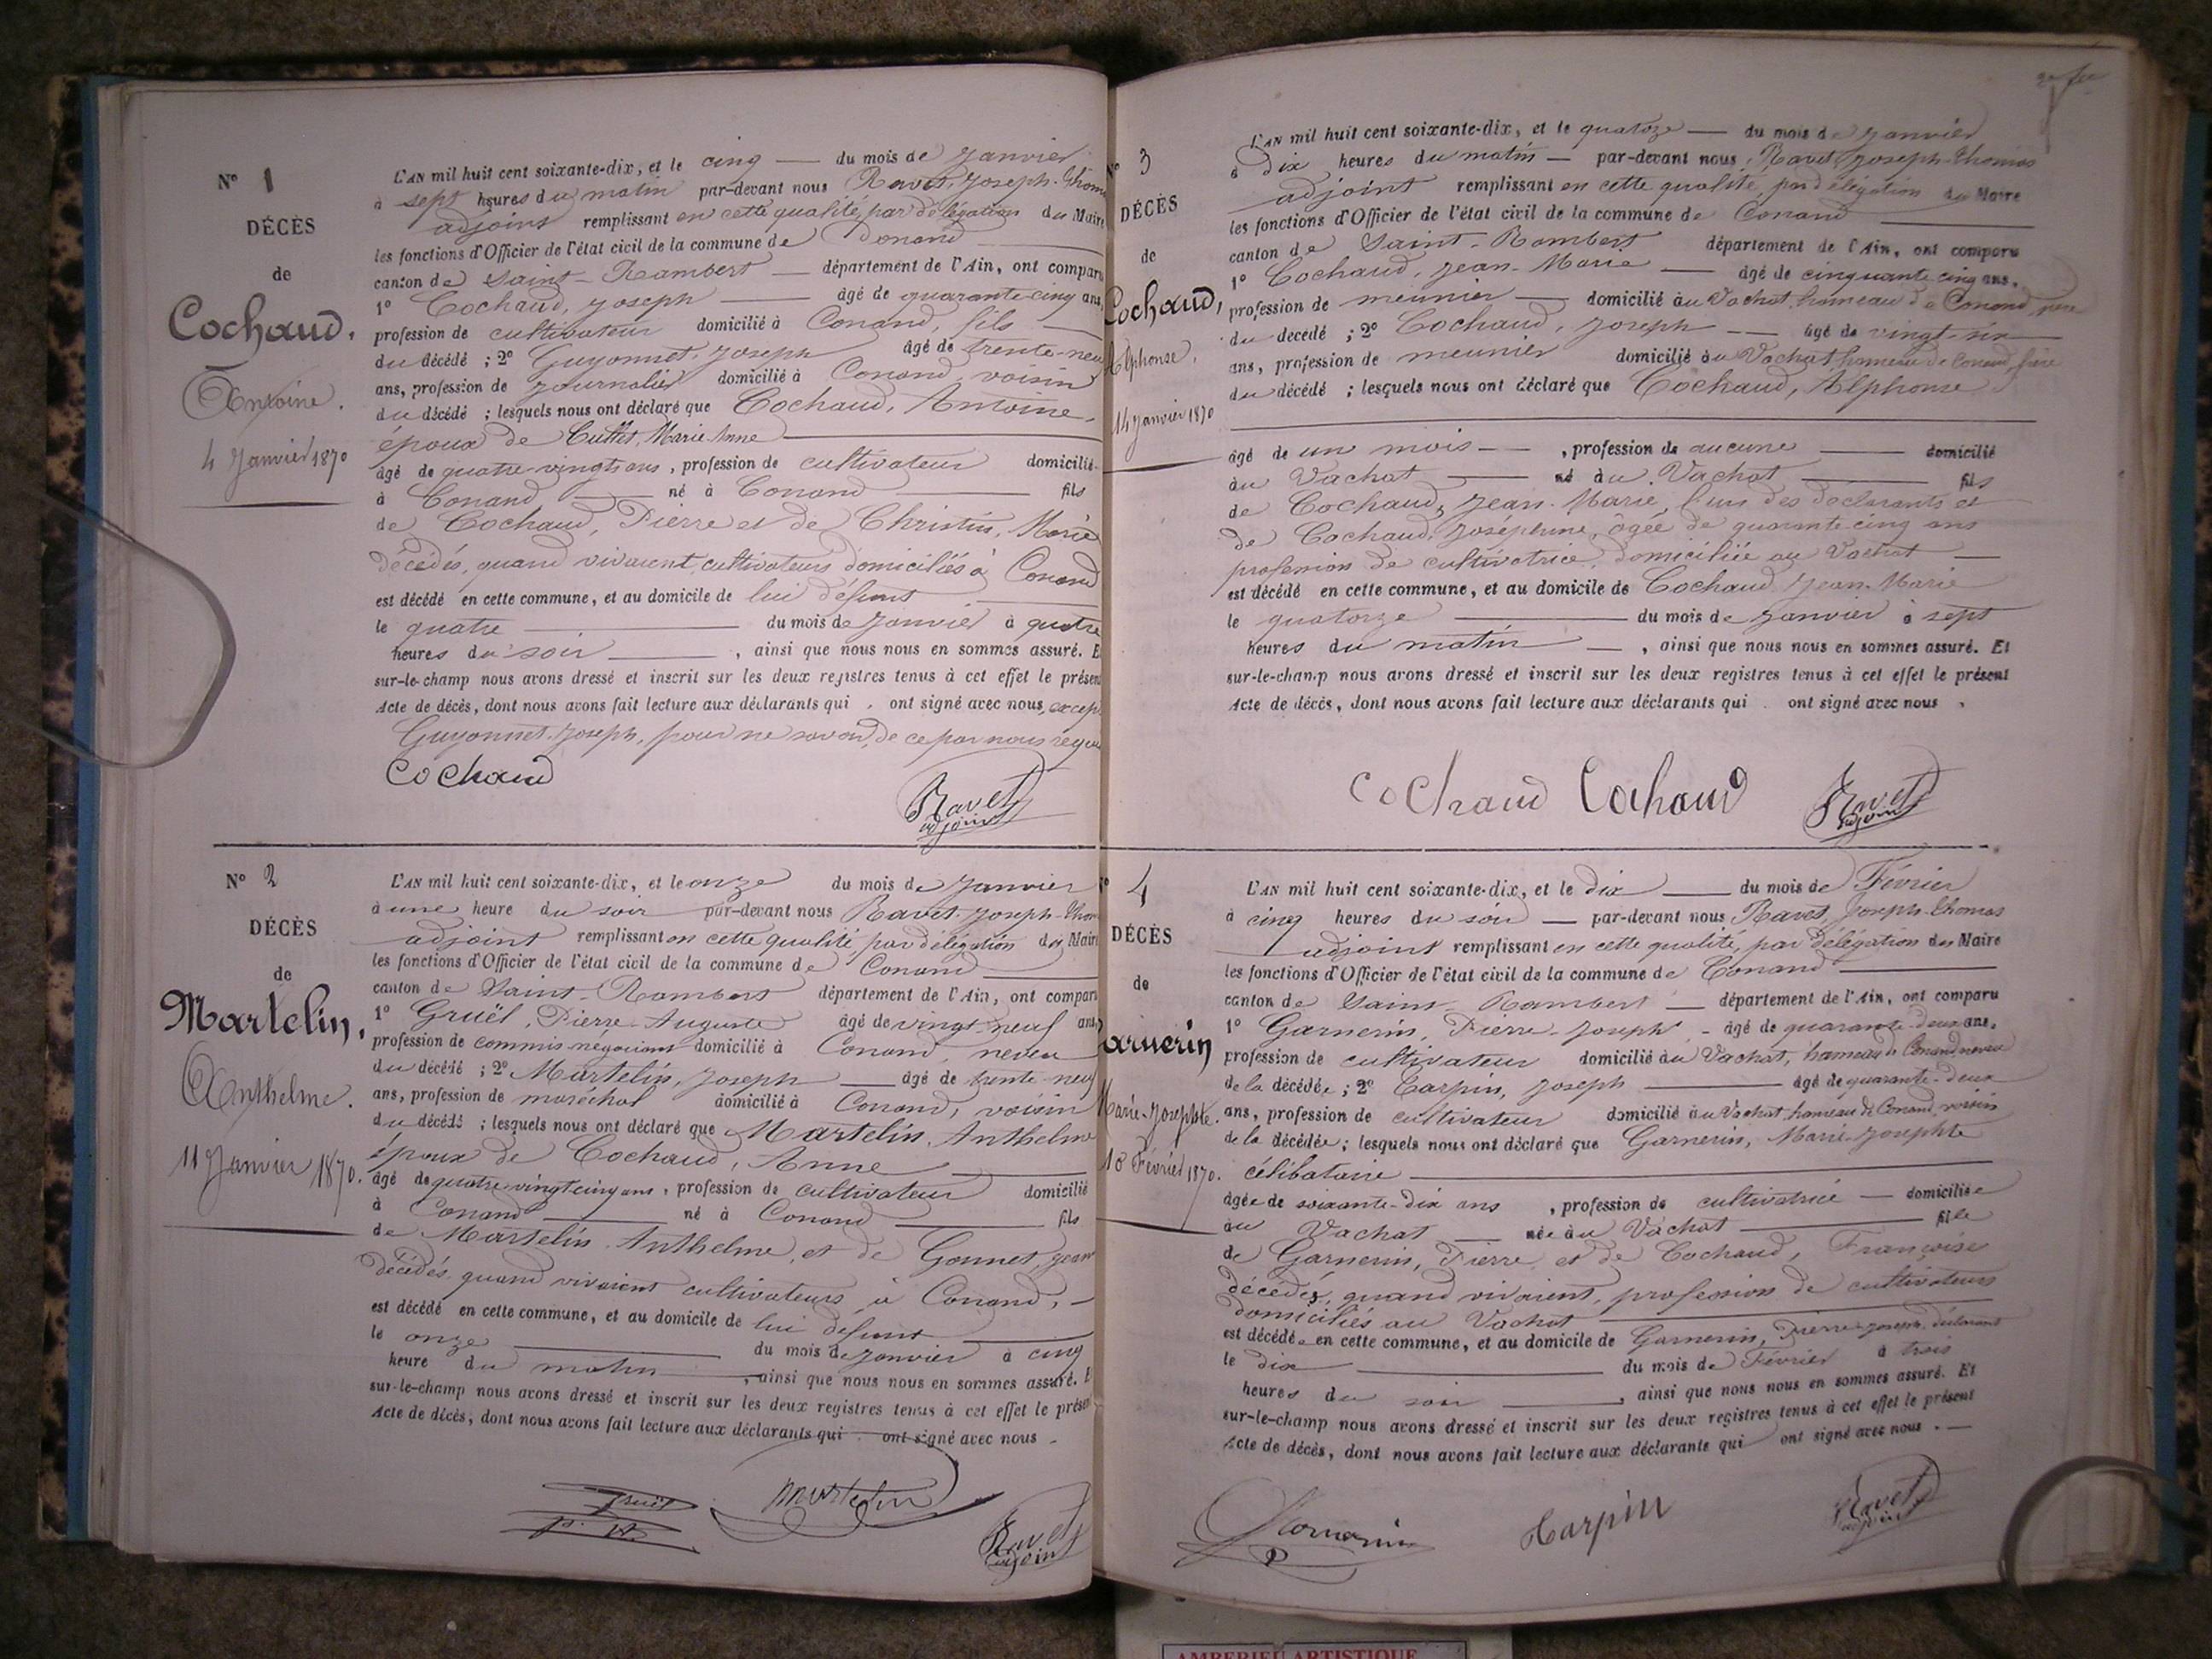 N° 1
DÉCÈS
de
Cochaud,
Antoine.
4 Janvier 1870
L'AN mil huit cent soixante-dix, et le cinq du mois de Janvier
à sept heures du matin par-devant nous Ravet, Joseph-Thom
adjoint remplissant en cette qualité, par délégation du Maire
les fonctions d'Officier de l'état civil de la commune de Conand
canton de Saint-Rambert département de l'Ain, ont comparu
1° Cochaud, Joseph âgé de quarante-cinq ans,
profession de cultivateur domicilié à Conand, fils
du décédé ; 2° Guyonnet, Joseph âgé de trente-neuf
ans, profession de Journalier domicilié à Conand, voisin
du décédé ; lesquels nous ont déclaré que Cochaud, Antoine,
époux de Marie-Anne
âgé de quatre-vingts ans, profession de cultivateur domicilié
à Conand né à Conand fils
de Cochaud, Pierre et de Christin, Marie
décédés, quand vivaient cultivateurs domiciliés à Conand
est décédé en cette commune, et au domicile de lui défunt
le quatre du mois de Janvier à quatre
heures du soir, ainsi que nous nous en sommes assuré. E
sur-le-champ nous avons dressé et inscrit sur les deux registres tenus à cet effet le présen
Acte de décès, dont nous avons fait lecture aux déclarants qui ont signé avec nous, excep
Guyonnet, Joseph, pour ne savoir, de ce par nous requis
Cochaud
Ravet
adjoint
N° 2
DÉCÈS
de
Martelin,
Anthelme.
11 Janvier 1870.
L'AN mil huit cent soixante-dix, et le onze du mois de Janvier
à une heure du soir par-devant nous Ravet, Joseph-Thom
adjoint remplissant en cette qualité par délégation du Maire
les fonctions d'Officier de l'état civil de la commune de Conand
canton de Saint-Rambert département de l'Ain, ont comparu
1° Gruël, Pierre-Auguste âgé de vingt-neuf ans,
profession de commis-négociant domicilié à Conand, neveu
du décédé ; 2° Martelin, Joseph âgé de trente-neuf
ans, profession de maréchal domicilié à Conand, voisin
du décédé ; lesquels nous ont déclaré que Martelin, Anthelme
époux de Cochaud, Anne
âgé de quatre-vingt cinq ans, profession de cultivateur domicilié
à Conand né à Conand fils
de Martelin, Anthelme, et de Gonnet, Jean
décédés, quand vivaient cultivateurs à Conand,
est décédé en cette commune, et au domicile de lui défunt
le onze du mois de Janvier à cinq
heure du matin, ainsi que nous nous en sommes assuré. E
sur-le-champ nous avons dressé et inscrit sur les deux registres tenus à cet effet le présen
Acte de décès, dont nous avons fait lecture aux déclarants qui ont signé avec nous.
Gruël
Martelin
Ravet
adjoint
N° 3
DÉCÈS
de
Cochaud,
Alphonse.
14 Janvier 1870
L'AN mil huit cent soixante-dix, et le quatorze du mois de Janvier
à dix heures du matin par-devant nous, Ravet, Joseph-Thomas
adjoint remplissant en cette qualité, par délégation du Maire
les fonctions d'Officier de l'état civil de la commune de Conand
canton de Saint-Rambert département de l'Ain, ont comparu
1° Cochaud, Jean-Marie âgé de cinquante cinq ans,
profession de meunier domicilié au Vachat, hameau de Conand, père
du décédé ; 2° Cochaud, Joseph âgé de vingt-six
ans, profession de meunier domicilié au Vachat hameau de Conand, frère
du décédé ; lesquels nous ont déclaré que Cochaud, Alphonse
âgé de un mois, profession de aucune domicilié
au Vachat né au Vachat fils
de Cochaud, Jean-Marie, l'un des déclarants et
de Cochaud, Joséphine, âgée de quarante-cinq ans
profession de cultivatrice, domiciliée au Vachat
est décédé en cette commune, et au domicile de Cochaud Jean-Marie
le quatorze du mois de Janvier à sept
heures du matin, ainsi que nous nous en sommes assuré. Et
sur-le-champ nous avons dressé et inscrit sur les deux registres tenus à cet effet le présent
Acte de décès, dont nous avons fait lecture aux déclarants qui ont signé avec nous,
Cochaud Cochaud Ravet
adjoint
4
DÉCÈS
de
arnerin
Marie-Josephte.
10 Février 1870.
L'AN mil huit cent soixante-dix, et le dix du mois de Février
à cinq heures du soir par-devant nous Ravet, Joseph-Thomas
adjoint remplissant en cette qualité, par délégation du Maire
les fonctions d'Officier de l'état civil de la commune de Conand
canton de Saint-Rambert département de l'Ain, ont comparu
1° Garnerin, Pierre-Joseph âgé de quarante-deux ans,
profession de cultivateur domicilié au Vachat, hameau de Conand, neveu
de la décédée ; 2° Carpin, Joseph âgé de quarante-deux
ans, profession de cultivateur domicilié au Vachat hameau de Conand, voisin
de la décédée ; lesquels nous ont déclaré que Garnerin, Marie-Josephte
célibataire
âgée de soixante-dix ans, profession de cultivatrice domiciliée
au Vachat née au Vachat fille
de Garnerin, Pierre et de Cochaud, Françoise
décédés, quand vivaient, profession de cultivateurs
domiciliés au Vachat
est décédée en cette commune, et au domicile de Garnerin, Pierre-Joseph, déclarant
le dix du mois de Février à trois
heures du soir, ainsi que nous nous en sommes assuré. Et
sur-le-champ nous avons dressé et inscrit sur les deux registres tenus à cet effet le présent
Acte de décès, dont nous avons fait lecture aux déclarants qui ont signé avec nous.
Garnerin
Carpin
Ravet
adjoint
AMBERIEU ARTISTIQUE